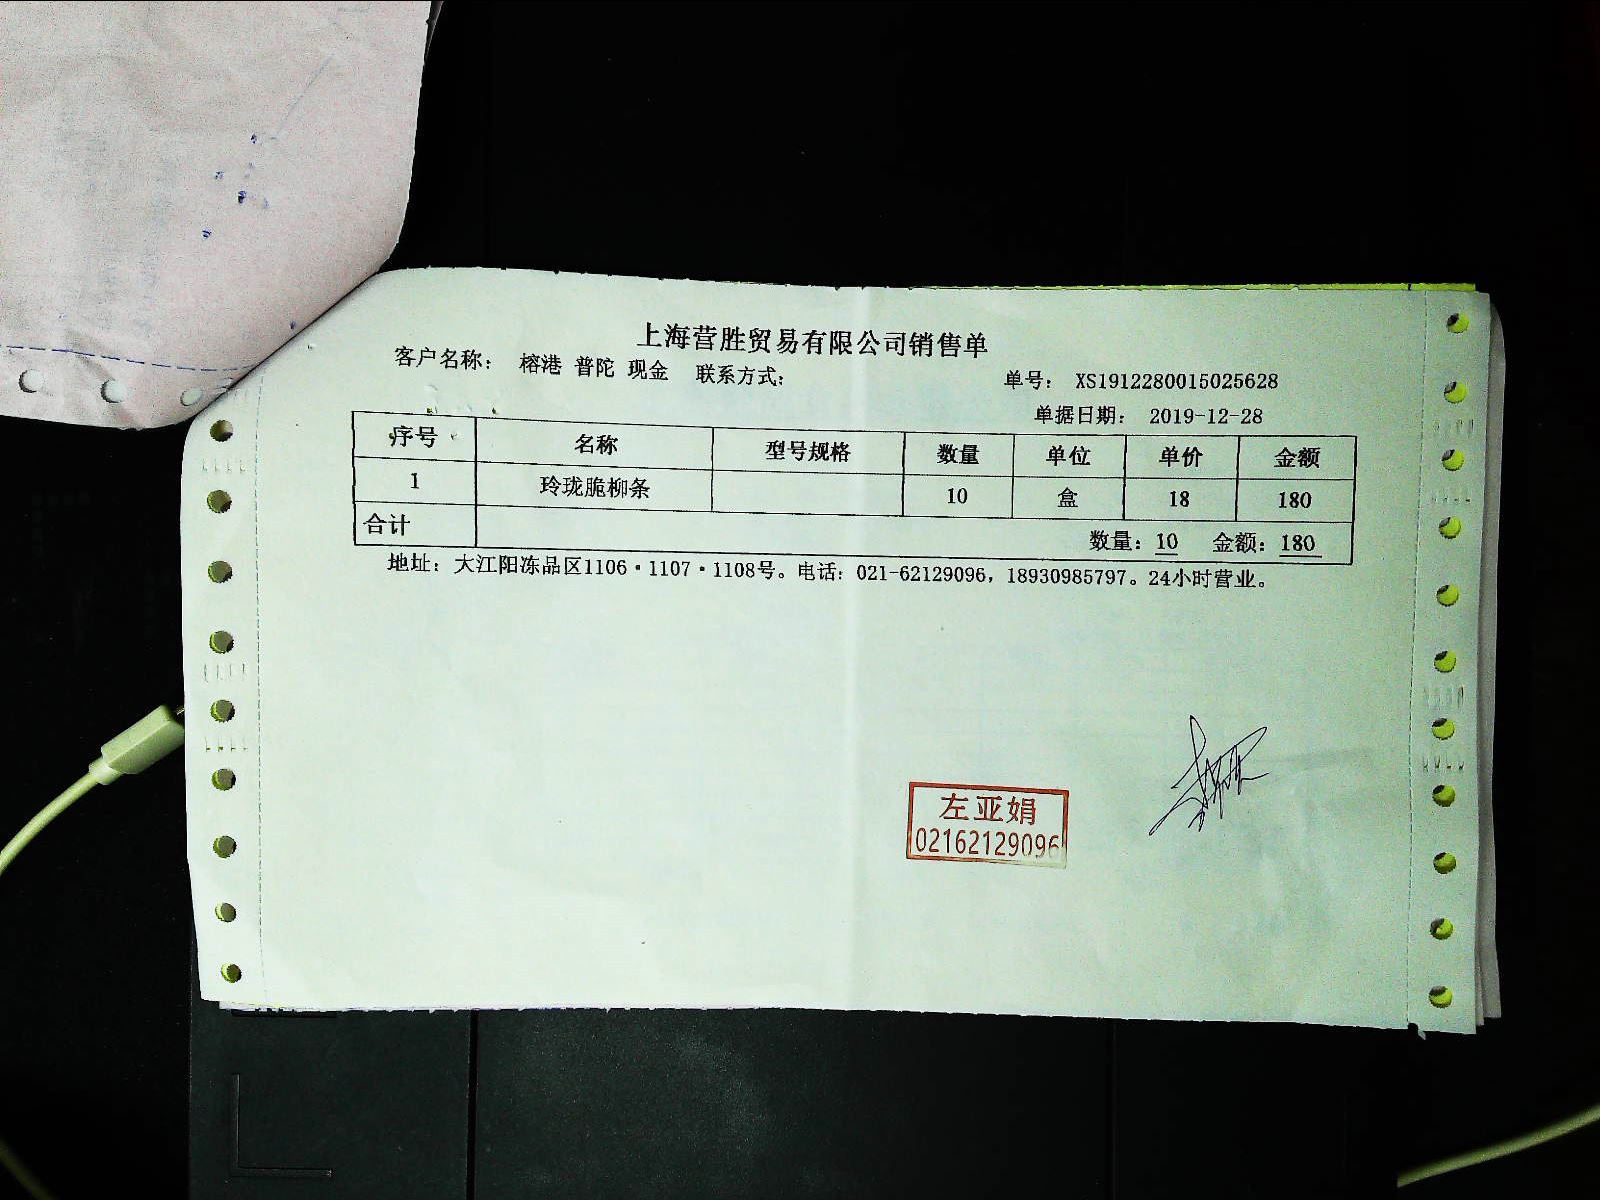 上海营胜贸易有限公司销售单
客户名称： 榕港 普陀 现金 联系方式： 单号： XS1912280015025628
单据日期： 2019-12-28
序号 名称 型号规格 数量 单位 单价 金额
1 玲珑脆柳条 10 盒 18 180
合计 数量：10 金额：180
地址：大江阳冻品区1106·1107·1108号。电话：021-62129096，18930985797。24小时营业。
左亚娟
02162129096